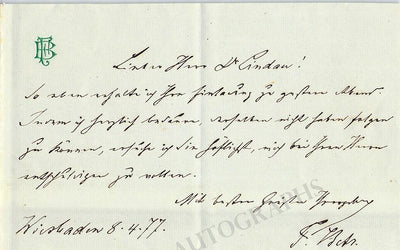 Lieber Herr Dr Lindau!
So eben erhalte ich Ihre Einladung zu gestern Abend.
Indem ich herzlich bedaure, derselben nicht haben folgen
zu können, ersuche ich Sie höflichst, mich bei Ihren
entschuldigen zu wollen.
Mit besten Grüßen
Wiesbaden 8.4.77.
F.
AUTOGRAPHS